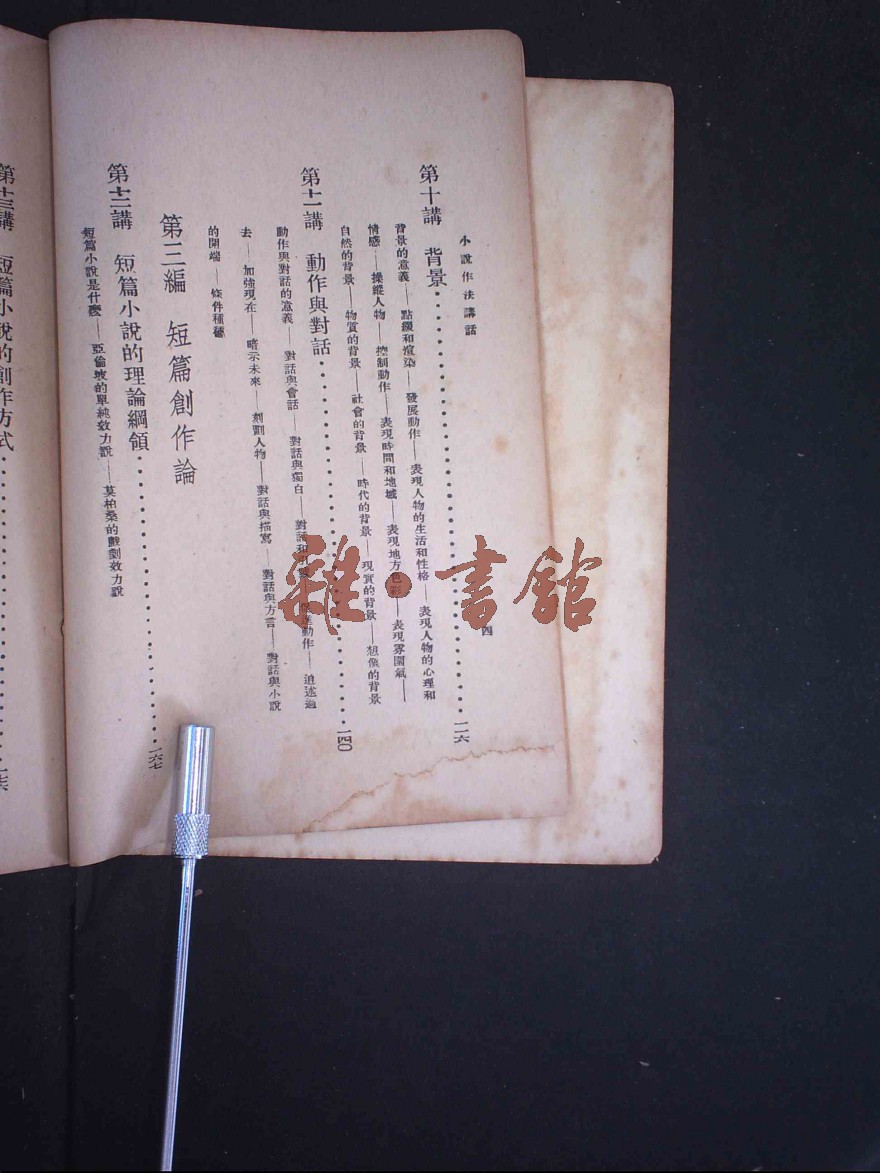 小說作法講話
四
第十講 背景………………一二六
背景的意義——點綴和渲染——發展動作——表現人物的生活和性格——表現人物的心理和
情感——操縱人物——控制動作——表現時間和地域——表現地方色彩——表現雰圍氣——
自然的背景——物質的背景——社會的背景——時代的背景——現實的背景——想像的背景
第十一講 動作與對話………………一四〇
動作與對話的意義——對話與會話——對話與獨白——對話和——動作——追述過
去——加強現在——暗示未來——刻劃人物——對話與描寫——對話與方言——對話與小說
的開端——條件種種
第三編 短篇創作論
第十二講 短篇小說的理論綱領………………一六七
短篇小說是什麼——亞倫坡的單純效力說——莫柏桑的戲劇效力說
第十三講 短篇小說的創作方式………………一七六
雜·書館